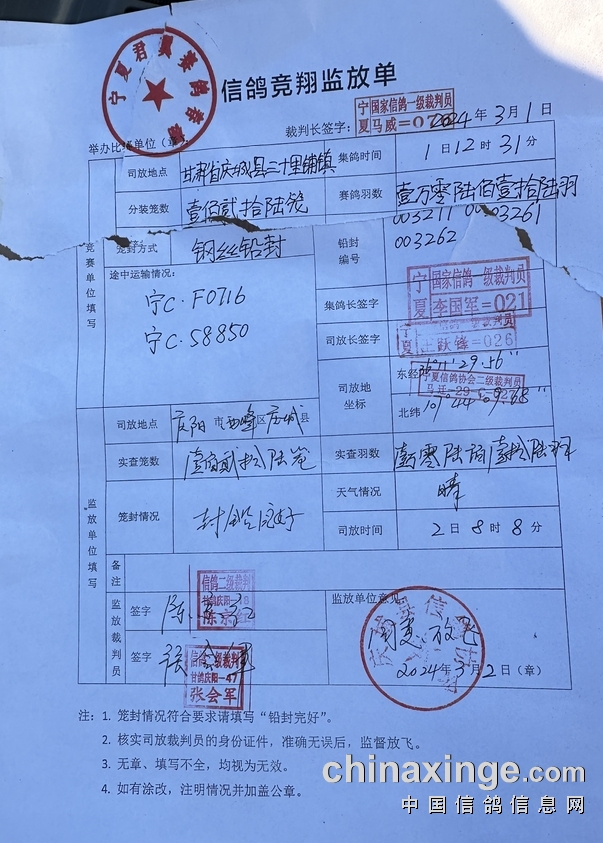 信鸽竞翔监放单
宁 国家信鸽一级裁判员
夏 马威=07
裁判长签字:
2024年3月1日
举办比赛单位(章)
司放地点 甘肃省庆城县三十里铺镇 集鸽时间 1日12时31分
分装笼数 壹佰贰拾陆笼 赛鸽羽数 壹万零陆佰壹拾陆羽
竞赛单位填写
笼封方式 钢丝铅封 铅封编号 003211 0003261
003262
途中运输情况:
宁C·F0716
宁C·S8850
集鸽长签字
宁 国家信鸽一级裁判员
夏 李国军=021
司放长签字
司放地坐标
东经
宁夏信鸽协会二级裁判员
北纬
司放地点 庆阳市西峰区庆城县
实查笼数 壹佰贰拾陆笼 实查羽数
监放单位填写
天气情况 晴
笼封情况 封锁完好 司放时间 2日8时8分
备注
监放裁判员
签字
信鸽二级裁判
监放单位意见
同意放飞
签字 张会军
信鸽一级裁判
甘鸽庆阳-47
张会军
2024年3月2日(章)
注:1. 笼封情况符合要求请填写“铅封完好”。
2. 核实司放裁判员的身份证件,准确无误后,监督放飞。
3. 无章、填写不全,均视为无效。
4. 如有涂改,注明情况并加盖公章。
chinaxinge.com
中国信鸽信息网